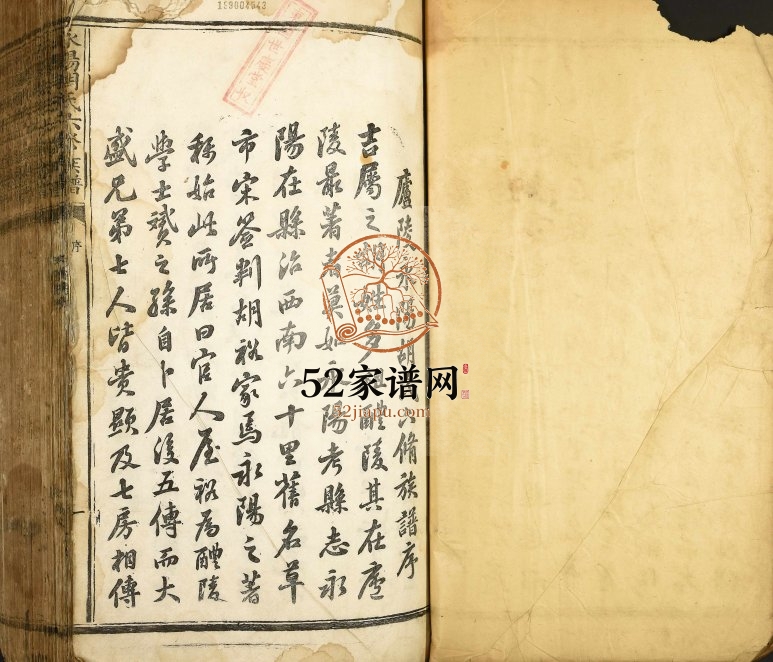 廬陵永陽胡六脩族譜序
吉屬之姓多醴陵其在廬
陵最著者莫如永陽考縣志永
陽在縣治西南六十里舊名草
市宋簽判胡裕家焉永陽之著
稱始此所居曰官人屋裕為醴陵
學士贇之孫自卜居後五傳而大
盛兄弟七人皆貴顯及七房相傳
序
189004543
52家谱网
52jiapu.com